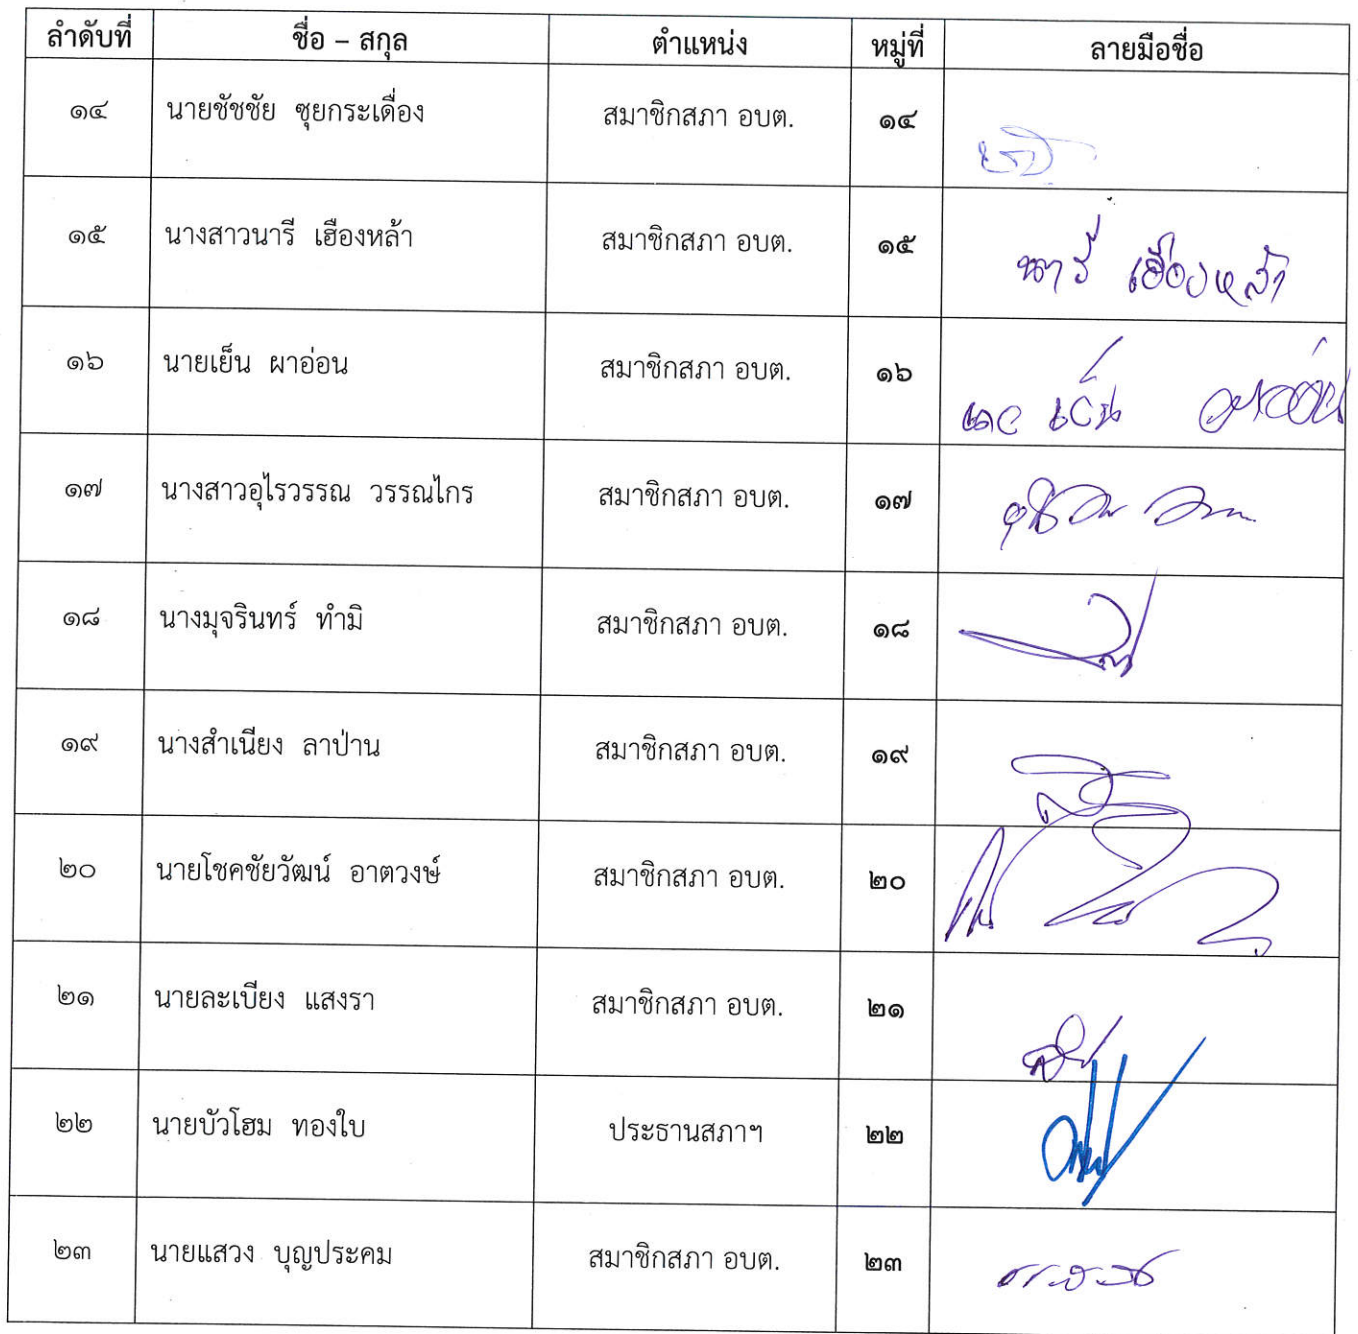 ลำดับที่ ชื่อ – สกุล ตำแหน่ง หมู่ที่ ลายมือชื่อ
๑๔ นายชัชชัย ซุยกระเดื่อง สมาชิกสภา อบต. ๑๔
๑๕ นางสาวนารี เฮืองหล้า สมาชิกสภา อบต. ๑๕ นารี เฮืองหล้า
๑๖ นายเย็น ผาอ่อน สมาชิกสภา อบต. ๑๖
๑๗ นางสาวอุไรวรรณ วรรณไกร สมาชิกสภา อบต. ๑๗
๑๘ นางมุจรินทร์ ทำมิ สมาชิกสภา อบต. ๑๘
๑๙ นางสำเนียง ลาป่าน สมาชิกสภา อบต. ๑๙
๒๐ นายโชคชัยวัฒน์ อาตวงษ์ สมาชิกสภา อบต. ๒๐
๒๑ นายละเบียง แสงรา สมาชิกสภา อบต. ๒๑
๒๒ นายบัวโฮม ทองใบ ประธานสภาฯ ๒๒
๒๓ นายแสวง บุญประคม สมาชิกสภา อบต. ๒๓